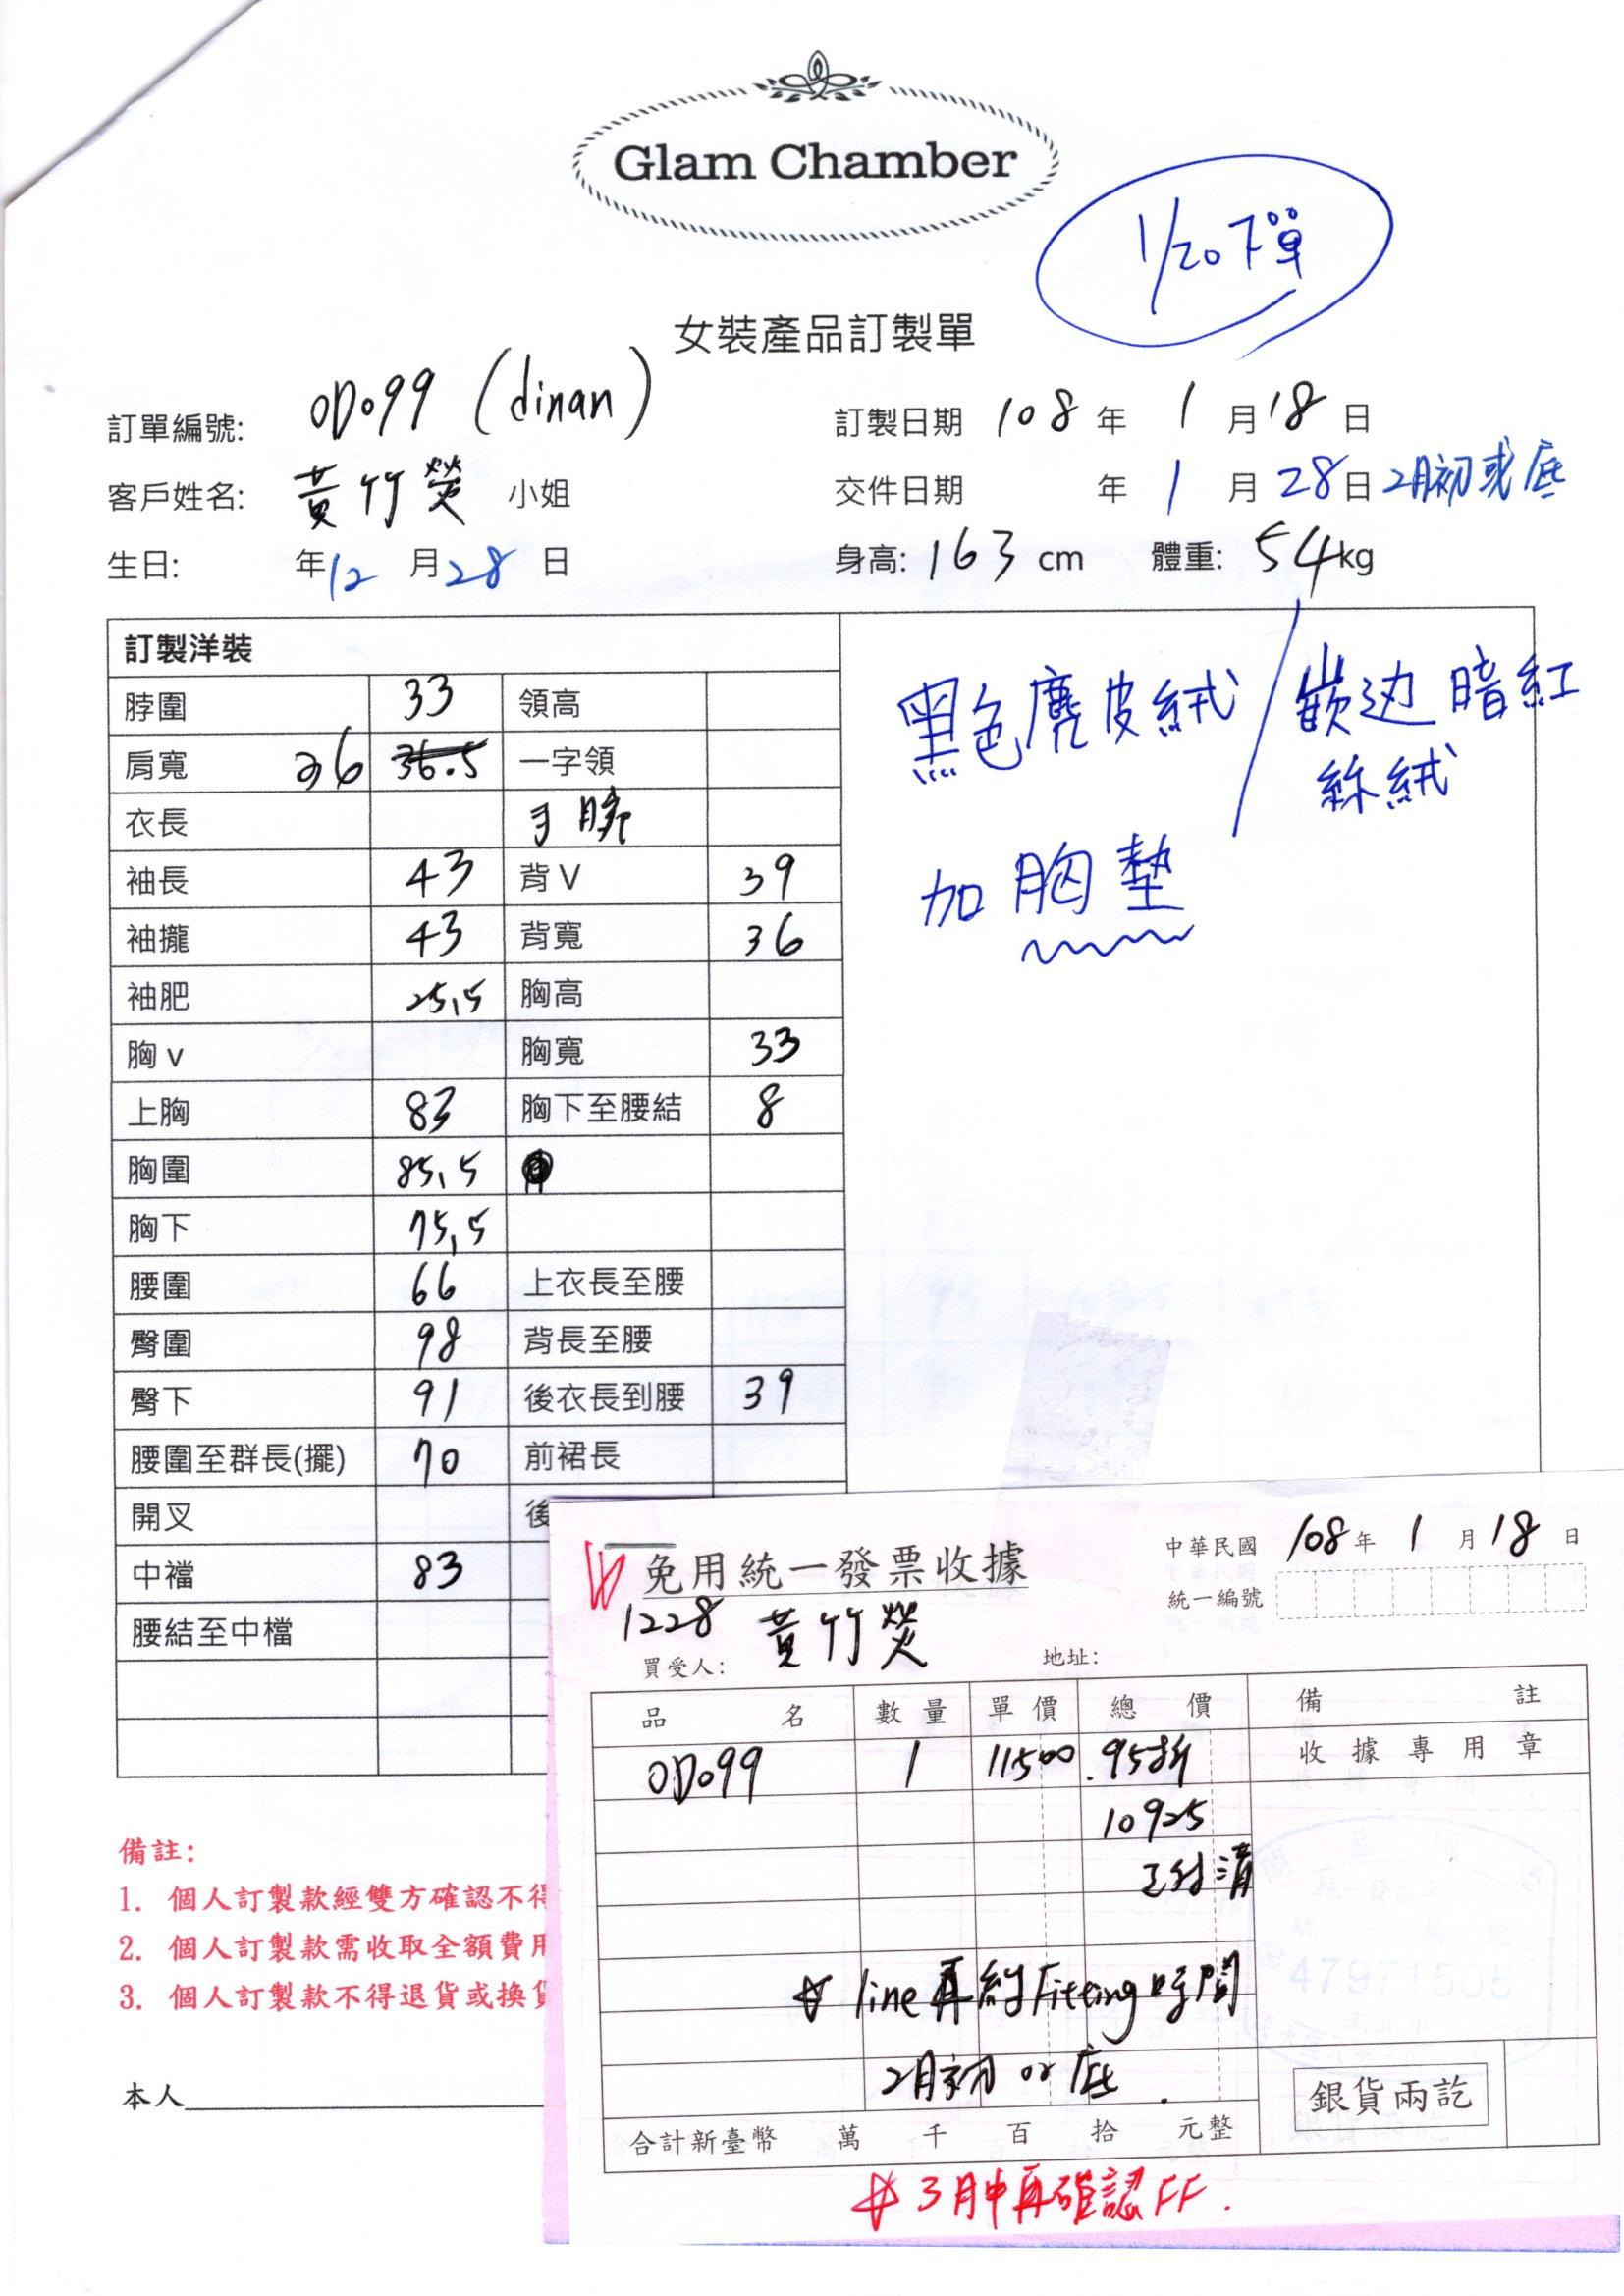 Glam Chamber
1/20下單
女裝產品訂製單
訂單編號: OD099 (dinan)
訂製日期 108 年 1 月 18 日
客戶姓名: 黃竹熒 小姐
交件日期 年 1 月 28 日 2月初或底
生日: 年 12 月 28 日
身高: 163 cm 體重: 54 kg
訂製洋裝
脖圍 33 領高
肩寬 36 36.5 一字領
衣長 手腕
袖長 43 背V 39
袖攏 43 背寬 36
袖肥 25,5 胸高
胸v 胸寬 33
上胸 83 胸下至腰結 8
胸圍 85,5
胸下 75,5
腰圍 66 上衣長至腰
臀圍 98 背長至腰
臀下 91 後衣長到腰 39
腰圍至群長(擺) 70 前裙長
開叉 後
中襠 83
腰結至中檔
黑色麂皮絨 / 嵌边暗紅
絲絨
加胸墊
備註:
1. 個人訂製款經雙方確認不得
2. 個人訂製款需收取全額費用
3. 個人訂製款不得退貨或換貨
本人
免用統一發票收據
中華民國 108 年 1 月 18 日
統一編號
1228 黃竹熒
買受人: 地址:
品名 數量 單價 總價 備註
收據專用章
OD099 1 11500 .95折
10925
已付清
line再約Fitting時間
2月初 or 底.
47971505
銀貨兩訖
合計新臺幣 萬 千 百 拾 元整
3月中再確認FF.